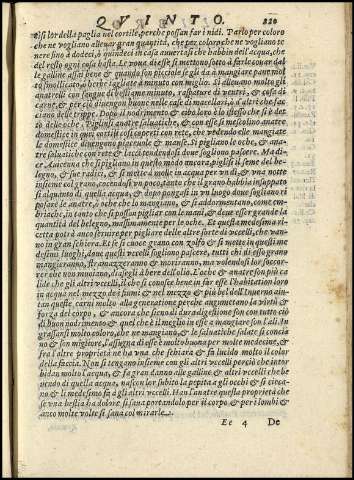 QVINTO. 220
si lor della paglia nel cortile perche possan far i nidi. Parlo per coloro
che ne vogliano alleuar gran quantità, che per coloro che ne vogliano te
nere sino à dodeci, ò quindeci in casa auuerrà si che habbin dell'acqua, che
del resto ogni cosa basta. Le voua d'esse si mettono sotto à farle couar dal
le galline assai bene & quando son piccole se gli dà à mangiare pane mol
to smollicato, ò herbe tagliate minuto con miglio. Si alleuano molto gli
anatrelli con sangue di bestie minuto, raspature di ventri, & cose di
carne, & perciò diuengon buone nelle case di macellari, ò d'altri che fac
ciano delle trippe. Dopo il nodrimento & cibo loro è lo stesso che si è det
to delle oche. Piglinsi anatre saluatiche, & con esse si mescolino anatre
domestice in quei cortili coperti con rete, che vedendo elle mangiare
le domestiche diuengono piaceuole & manse. Si pigliano le oche, & ana-
tre saluatiche con rete & lacci tendendosi doue sogliono pascere. Ma di-
ce Auicenna che si pigliano in questo modo ancora piglisi il seme del be
legno, & sue radici, & si mette à molle in acqua per vn dì, & vna notte
insieme col grano, cocendosi vn poco, tanto che il grano habbia insuppato
sì alquanto di quella acqua, & dopo pongasi in vn luogo doue sogliono ri
posare le anatre, ò oche che lo mangiano, & si addormentano, come em-
briache, in tanto che si possan pigliar con le mani, & deue esser grande la
quantità del belegno, massimamente per le oche. Et questa medesima ri-
cetta potrà anco seruire per pigliare delle altre sorte di vccelli, che van-
no in gran schiera. Et se si cuoce grano con zolfo & si mette in questi me
desimi luoghi, doue questi vccelli sogliono pascere, tutti che di esso grano
mangieranno, stramazzeranno & moriranno, ma volendosi lor soccor-
rer che non muoiano, dia segli à bere dell'olio. L'oche & anatre son più ca
lide che gli altri vccelli, il che si conosce bene in far esse l'habitation loro
in acqua nel mezzo dei fiumi & nel mezzo & più bel dell'Inuerno aiu-
tan queste carni molto alla generatione perche augmetano la virtù &
forza del corpo, & ancora che sieno di dura digestione son con tutto ciò
di buon nodrimento & quel che è il meglio in esse à mangiare son l'ali. In
grassansi molto coloro, che ne mangiano, & le saluatiche salate si concia
no & son migliori, l'assugna di esse è molto buona per molte medicine, &
frà l'altre proprietà ne ha vna che schiara & fa lucido molto il color
della faccia. Non si tengano insieme con gli altri vccelli perciò che intor
bidan molto l'acqua, & fa gran danno alle galline & altri vccelli che be
uendo di quella acqua, nascon lor subito la pepita à gli occhi & si cieca-
no & il medesimo fa à gli altri vccelli. Han l'anatre questa proprietà che
se vna bestia ha dolore si sana portandolo per il corpo & per i lombi &
anco molte volte si sana col mirarle.
Ee 4 De